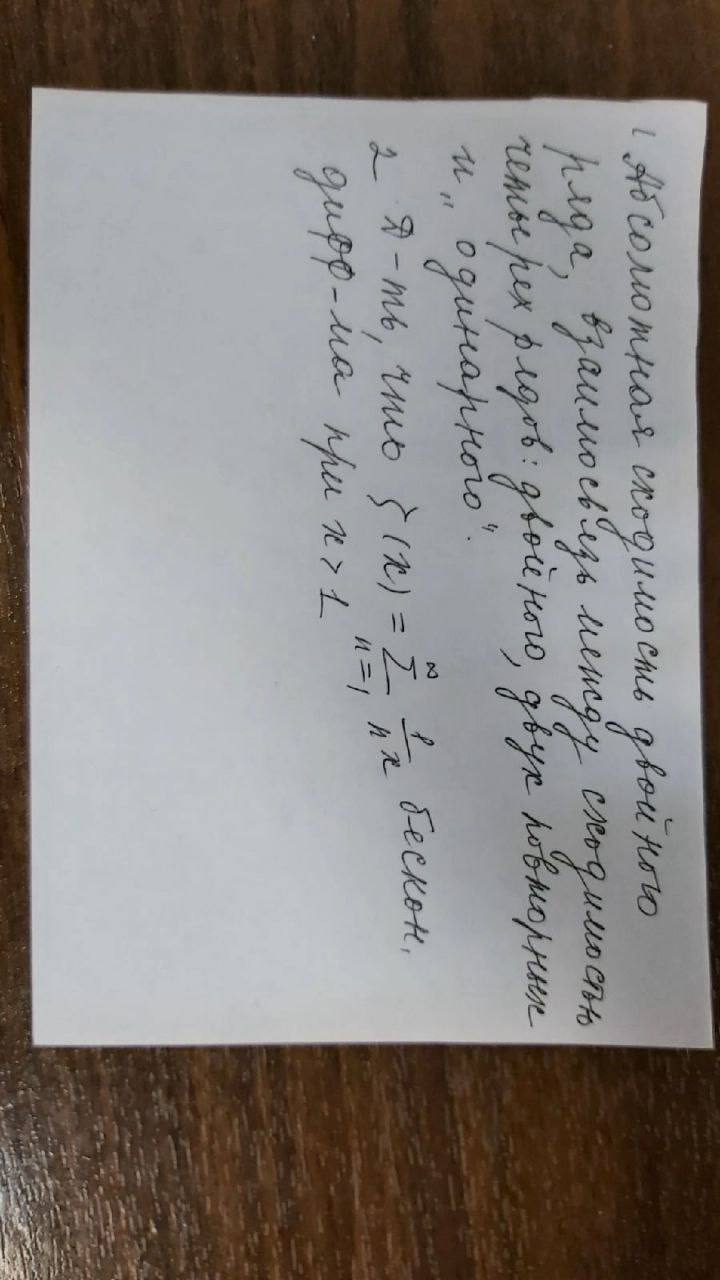 1 Абсолютная сходимость двойного
ряда, взаимосвязь между сходимостью
четырех рядов: двойного, двух повторных
и „одинарного".
2 Д-ть, что ζ(x) = ∑_{n=1}^{∞} 1/n^x бескон.
дифф-ма при x > 1